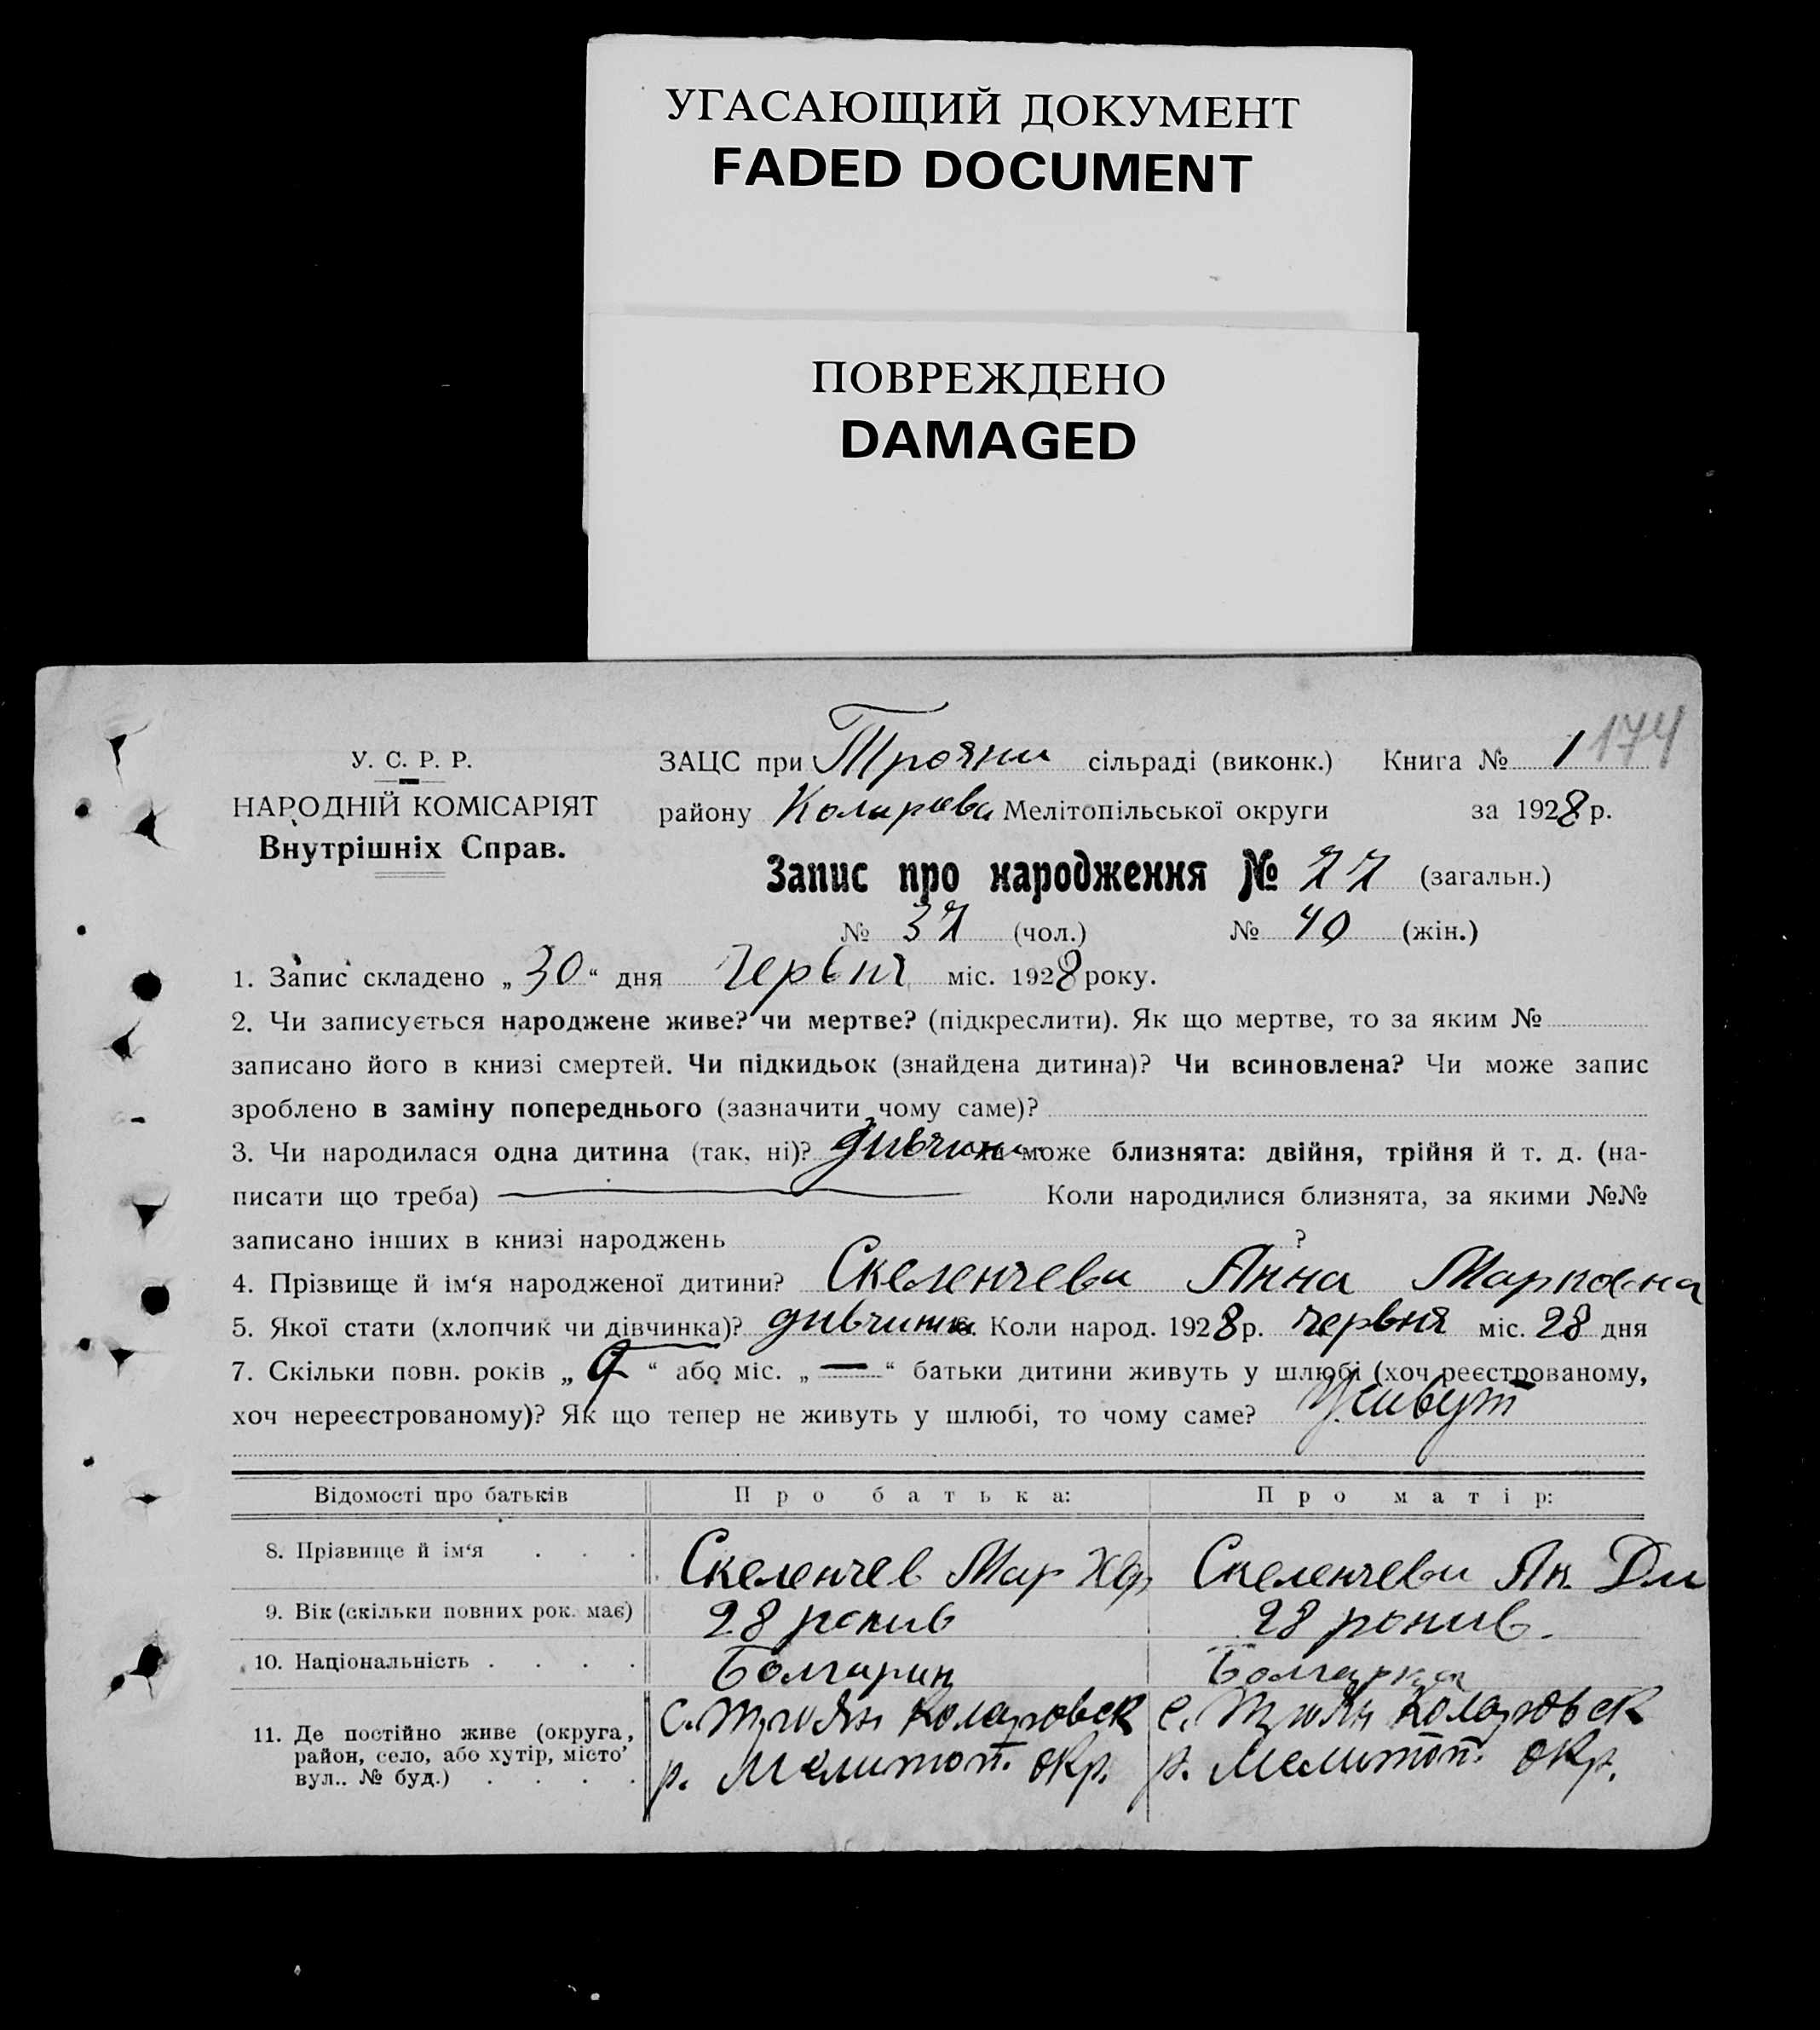 УГАСАЮЩИЙ ДОКУМЕНТ
FADED DOCUMENT
ПОВРЕЖДЕНО
DAMAGED
174
У. С. Р. Р.
НАРОДНІЙ КОМІСАРІЯТ
Внутрішніх Справ.
ЗАЦС при Трояни сільраді (виконк.) Книга № 1
району Коларова Мелітопільської округи за 1928 р.
Запис про народження № 77 (загальн.)
№ 37 (чол.) № 40 (жін.)
1. Запис складено „30“ дня червня міс. 1928 року.
2. Чи записується народжене живе? чи мертве? (підкреслити). Як що мертве, то за яким №
записано його в книзі смертей. Чи підкидьок (знайдена дитина)? Чи всиновлена? Чи може запис
зроблено в заміну попереднього (зазначити чому саме)?
3. Чи народилася одна дитина (так, ні)? дивчина може близнята: двійня, трійня й т. д. (на-
писати що треба) Коли народилися близнята, за якими №№
записано інших в книзі народжень ?
4. Прізвище й ім‘я народженої дитини? Скеленчева Анна
5. Якої стати (хлопчик чи дівчинка)? дивчинка 6. Коли народ. 1928 р. червня міс. 28 дня
7. Скільки повн. років „9“ або міс. „—“ батьки дитини живуть у шлюбі (хоч реєстрованому,
хоч нереєстрованому)? Як що тепер не живуть у шлюбі, то чому саме? живут
Відомості про батьків Про батька: Про матір:
8. Прізвище й ім‘я . . . Скеленчев Мар Скеленчева Ан. Дм
9. Вік (скільки повних рок. має) 28 рокив 28 рокив.
10. Національність . . . . Болгарин Болгарка
11. Де постійно живе (округа, с. Троян Коларовск с. Троян Коларовск
район, село, або хутір, місто, р. Мелитоп. окр. р. Мелитоп. окр.
вул.. № буд.) . . . .